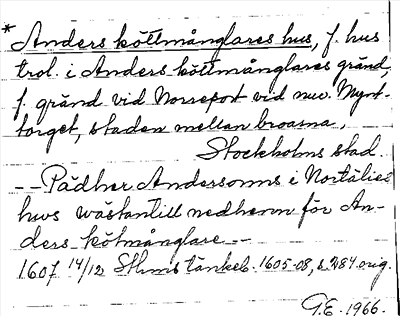 * Anders köttmånglares hus, f. hus
trol. i Anders köttmånglares gränd,
f. gränd vid Norreport vid nuv. Mynt-
torget, staden mellan broarna,
Stockholms stad.
-- Pädher Anderssonns i Nortälies
huus wästantill nedhenn för An-
ders kötmånglare --
1607 14/12 Sthms tänkeb. 1605-08, s. 284 orig.
G.E. 1966.